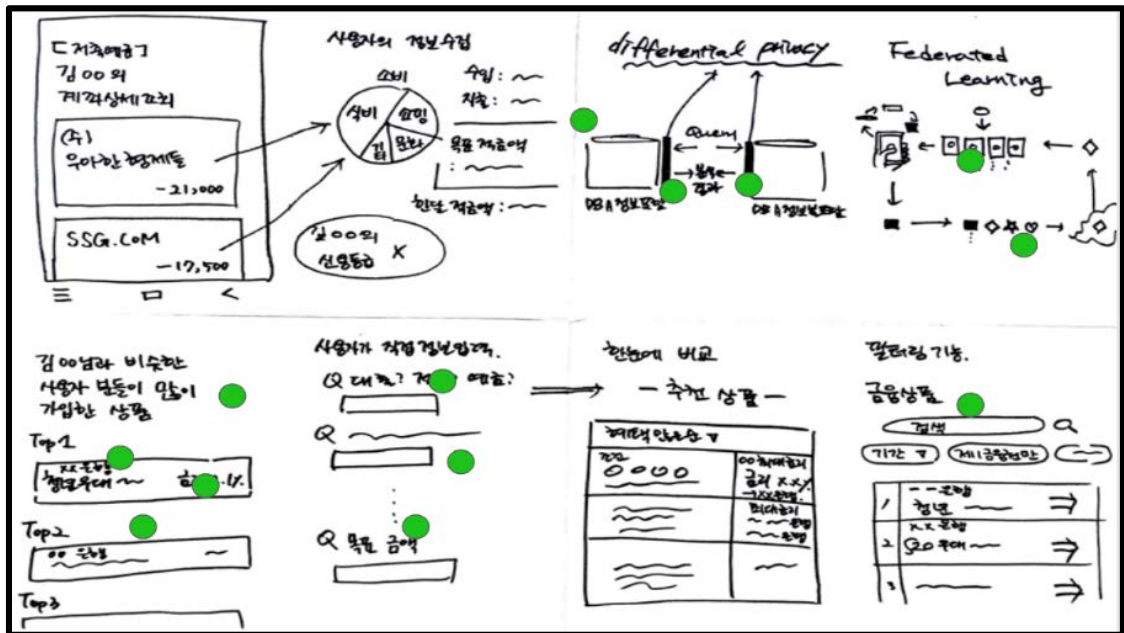 [저축예금]
김 ○○ 의
계좌상세조회
(주)
우아한형제들
-21,000
SSG.COM
-17,500
사용자의 정보수집
소비
식비
쇼핑
문화
기타
수입 :
지출 :
목표 적금액
:
한달 적금액 :
김 ○○의
신용등급 X
differential privacy
Query
분석
결과
Federated
Learning
김○○님과 비슷한
사용자 분들이 많이
가입한 상품
Top1
xx은행
청년우대
Top2
○○ 은행
Top3
사용자가 직접 정보입력.
Q 대출? 예금?
Q
Q 목표 금액
한눈에 비교
- 추천 상품 -
혜택 많은순 ▼
금리 x.x%
최대금리
필터링 기능.
금융상품
검색
기간 ▼
제1금융권만
1 --은행
청년
2 xx 은행
우대
3